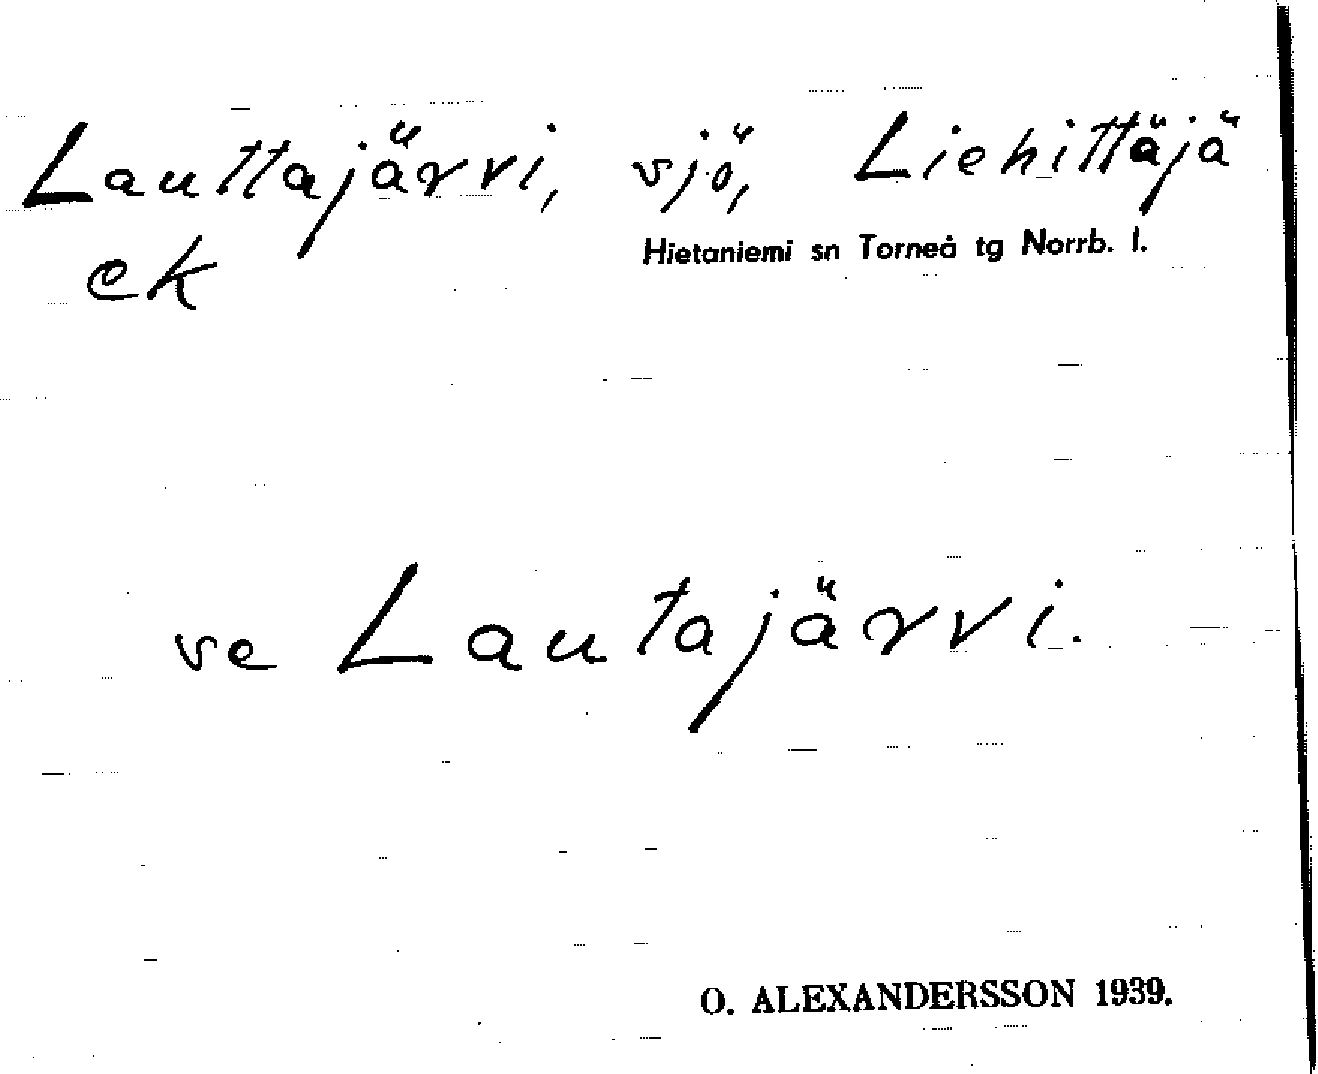 Lauttajärvi, sjö, Liehittäjä
ek Hietaniemi sn Torneå tg Norrb. l.
se Lautajärvi.
O. ALEXANDERSSON 1939.